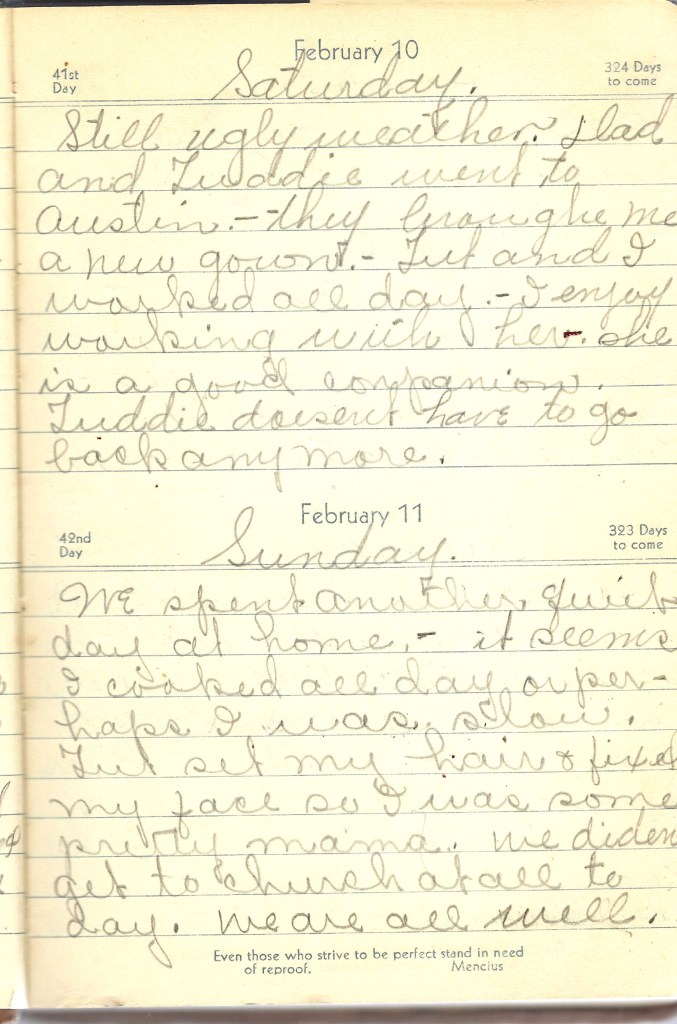 February 10
41st
Day
324 Days
to come
Saturday.
Still ugly weather. Dad
and Tuddie went to
Austin. - they broughe me
a new gown. - Tut and I
worked all day. - I enjoy
working with her. she
is a good companion.
Tuddie doesent have to go
back any more.
February 11
42nd
Day
323 Days
to come
Sunday.
We spent another quiet
day at home, - it seems
I cooked all day or per-
haps I was slow.
Tut set my hair & fixed
my face so I was some
pretty mama. We diden
get to church at all to
day. We are all well.
Even those who strive to be perfect stand in need
of reproof. Mencius